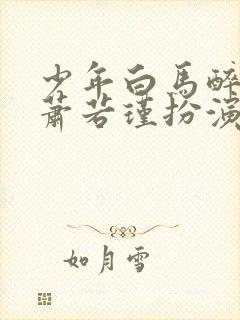 少年白马醉
萧若瑾扮演
如月雪